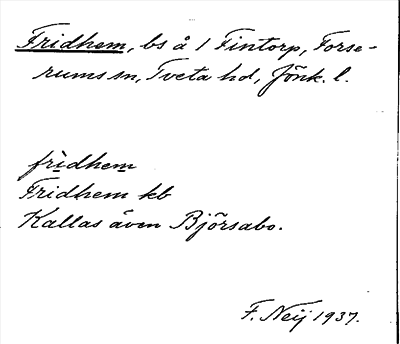 Fridhem, bs å 1 Fintorp, Forse-
rums sn, Tveta hd, Jönk. l.
frìdhem
Fridhem kb
Kallas även Björsabo.
F. Neij 1937.